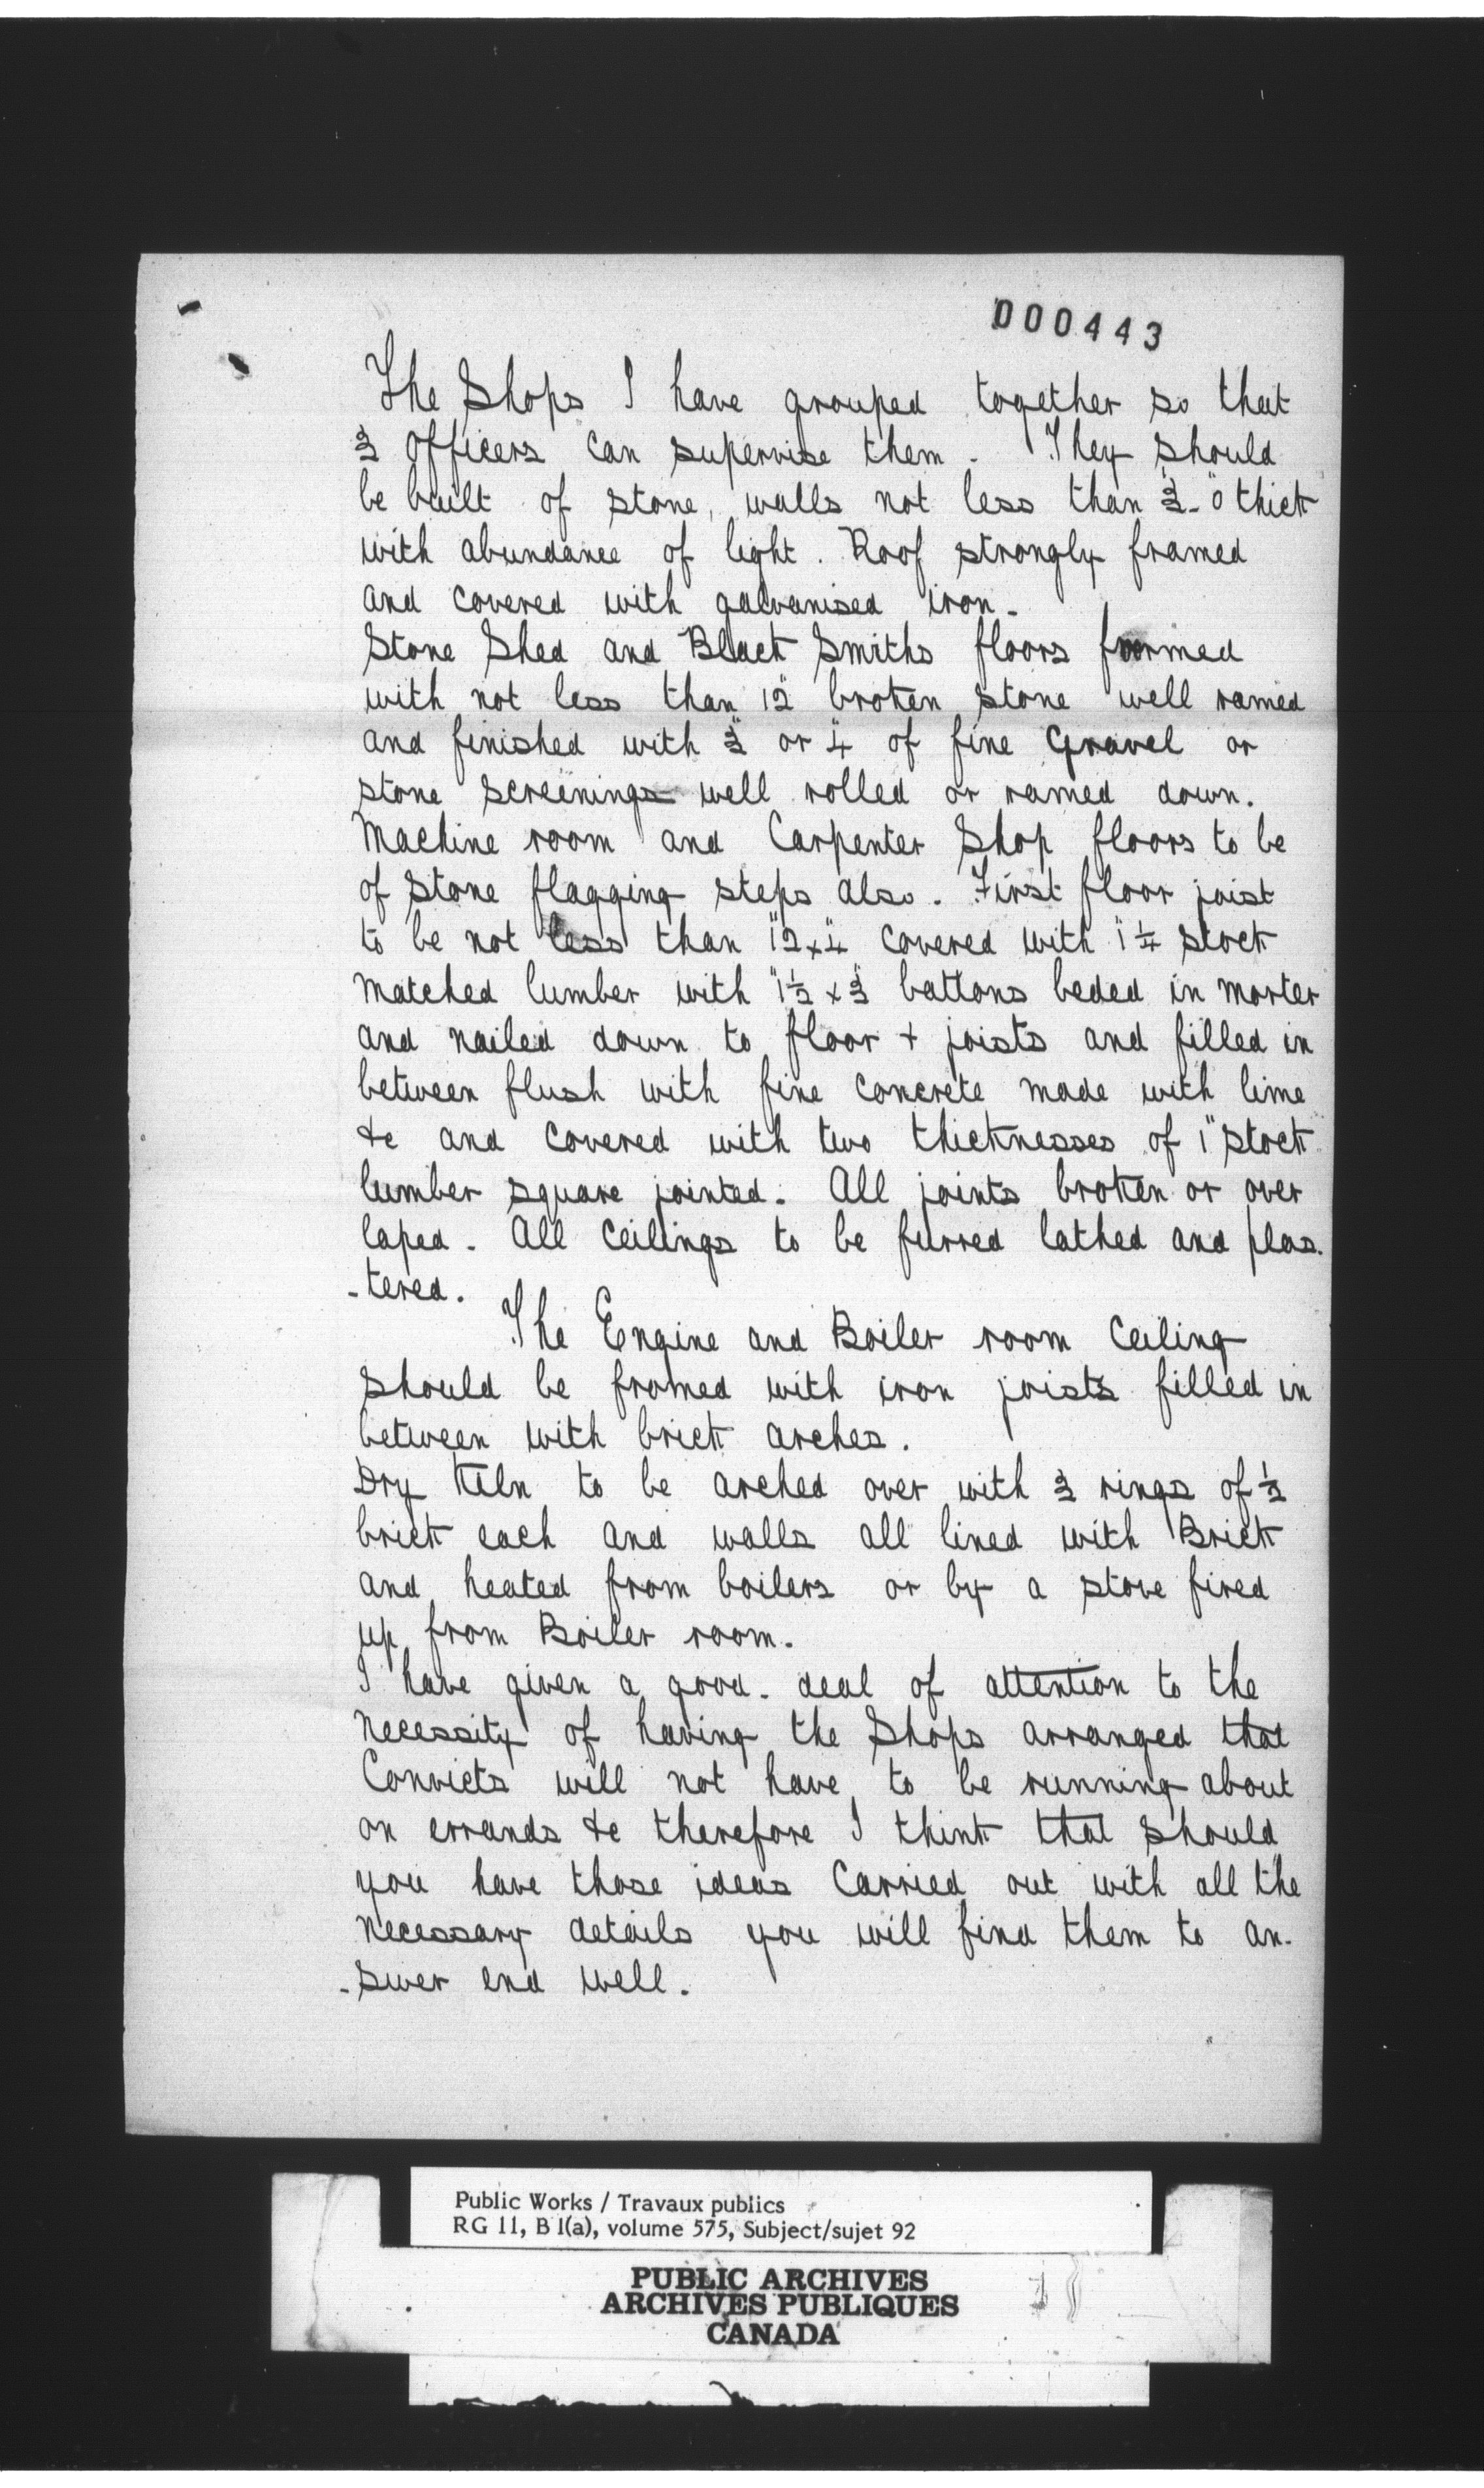 000443
The Shops I have grouped together so that
3 officers can supervise them. They should
be built of stone, walls not less than 2'-"0 thick
with abundance of light. Roof strongly framed
and covered with galvanised iron.
Stone Shed and Black Smiths floors formed
with not less than 12" broken stone well ramed
and finished with 3" or 4" of fine Gravel or
stone screenings well rolled or ramed down.
Machine room and Carpenter Shop floors to be
of stone flagging steps also. First floor joist
to be not less than "12 x 4" covered with "1 1/4 stock
matched lumber with "1 1/2 x 3" battons beded in morter
and nailed down to floor + joists and filled in
between flush with fine concrete made with lime
&c and covered with two thicknesses of 1" stock
lumber square jointed. All joints broken or over
laped. All Ceilings to be furred lathed and plas-
-tered.
The Engine and Boiler room Ceiling
should be framed with iron joists filled in
between with brick arches.
Dry Kiln to be arched over with 3 rings of 1/2
brick each and walls all lined with Brick
and heated from boilers or by a stove fired
up from Boiler room.
I have given a good. deal of attention to the
necessity of having the Shops arranged that
Convicts will not have to be running about
on errands &c therefore I think that should
you have those ideas Carried out with all the
necessary details you will find them to an-
-swer end well.
Public Works / Travaux publics
RG 11, B 1(a), volume 575, Subject/sujet 92
PUBLIC ARCHIVES
ARCHIVES PUBLIQUES
CANADA